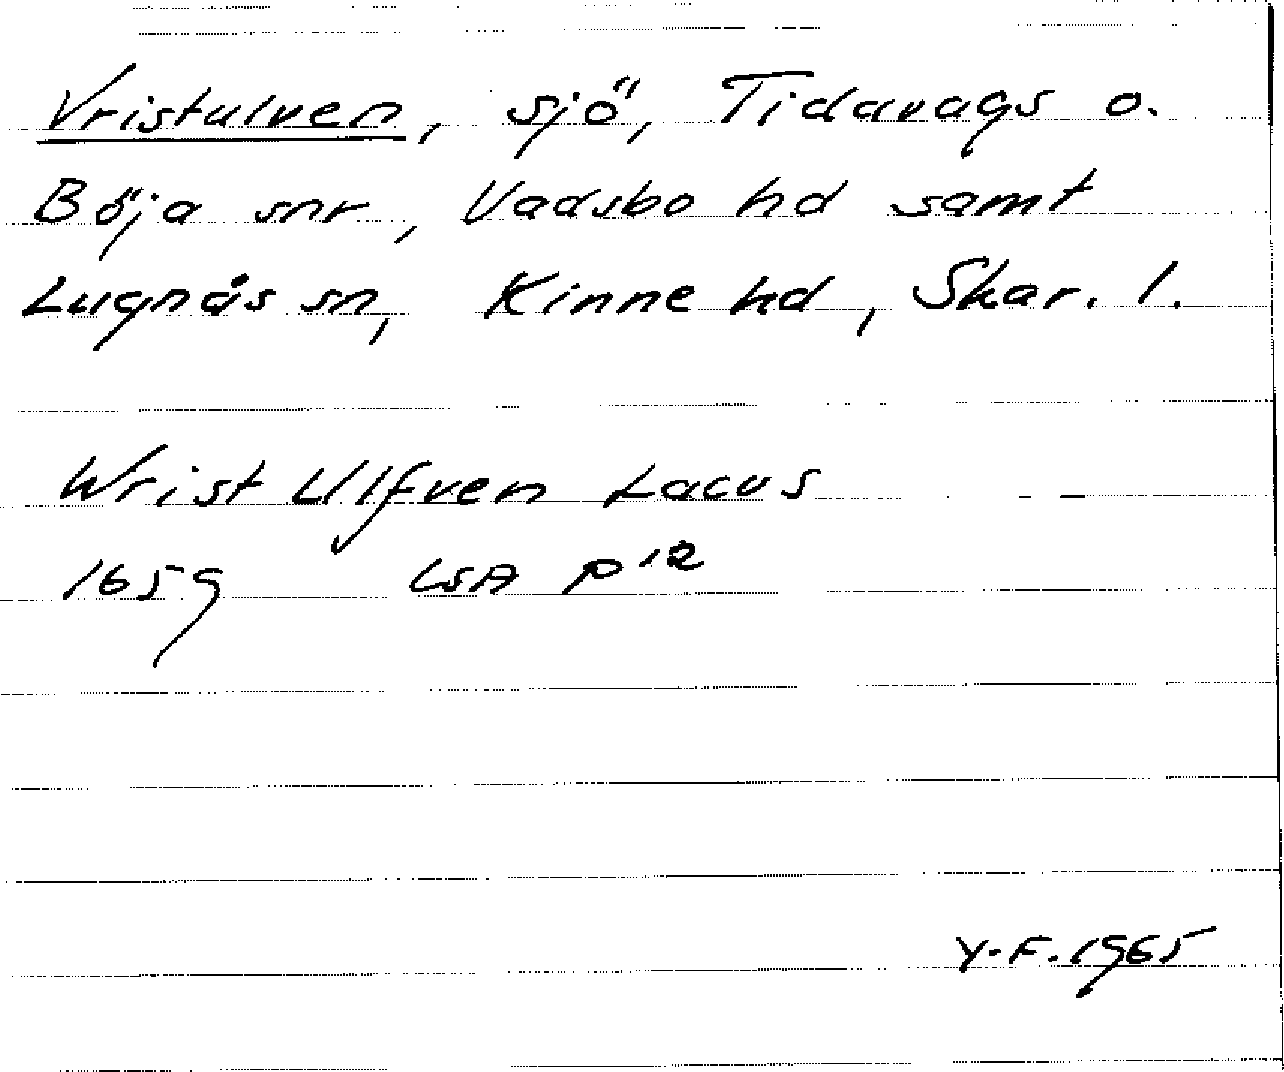 Vristulven, sjö, Tidavags o.
Böja snr, Vadsbo hd samt
Lugnås sn, Kinne hd, Skar. l.
Wrist Ulfven Lacus
1659 LSA P12
Y.F. 1965